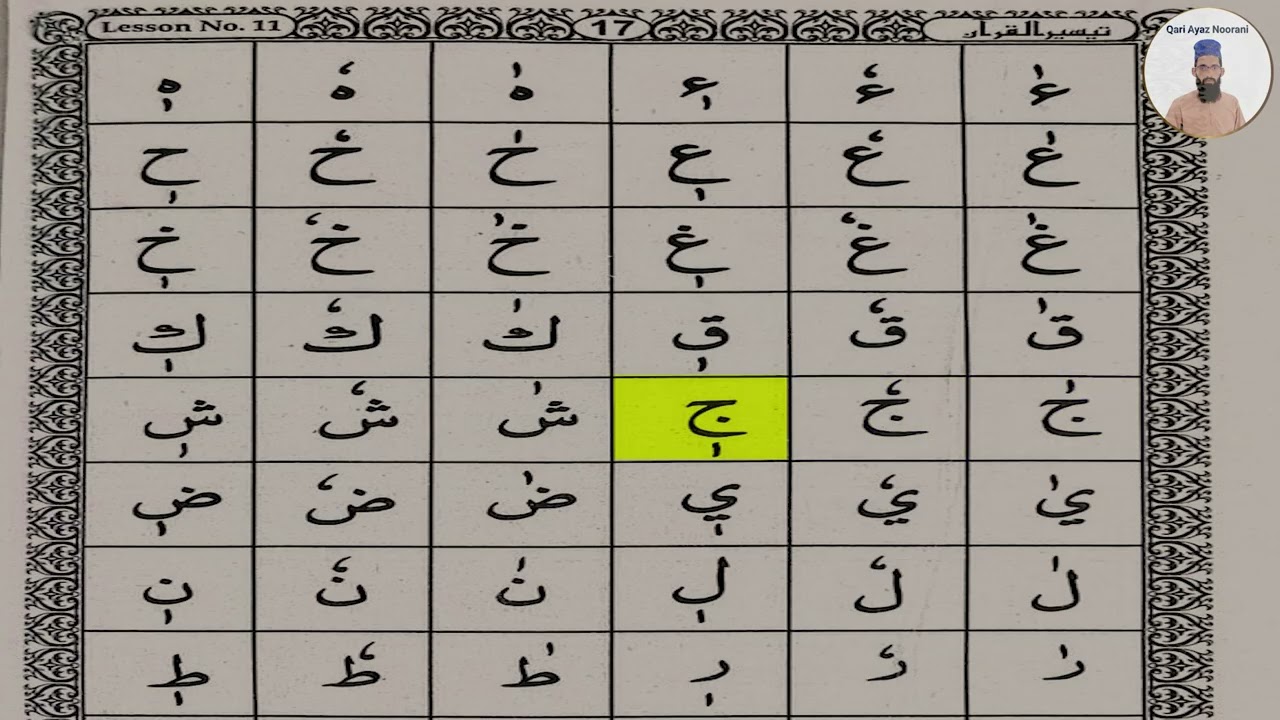 Lesson No. 11 17 تيسير القرآن
Qari Ayaz Noorani
ءٰ ءٗ ءٖ هٰ هٗ هٖ
عٰ عٗ عٖ حٰ حٗ حٖ
غٰ غٗ غٖ خٰ خٗ خٖ
قٰ قٗ قٖ كٰ كٗ كٖ
جٰ جٗ جٖ شٰ شٗ شٖ
يٰ يٗ يٖ ضٰ ضٗ ضٖ
لٰ لٗ لٖ نٰ نٗ نٖ
رٰ رٗ رٖ طٰ طٗ طٖ